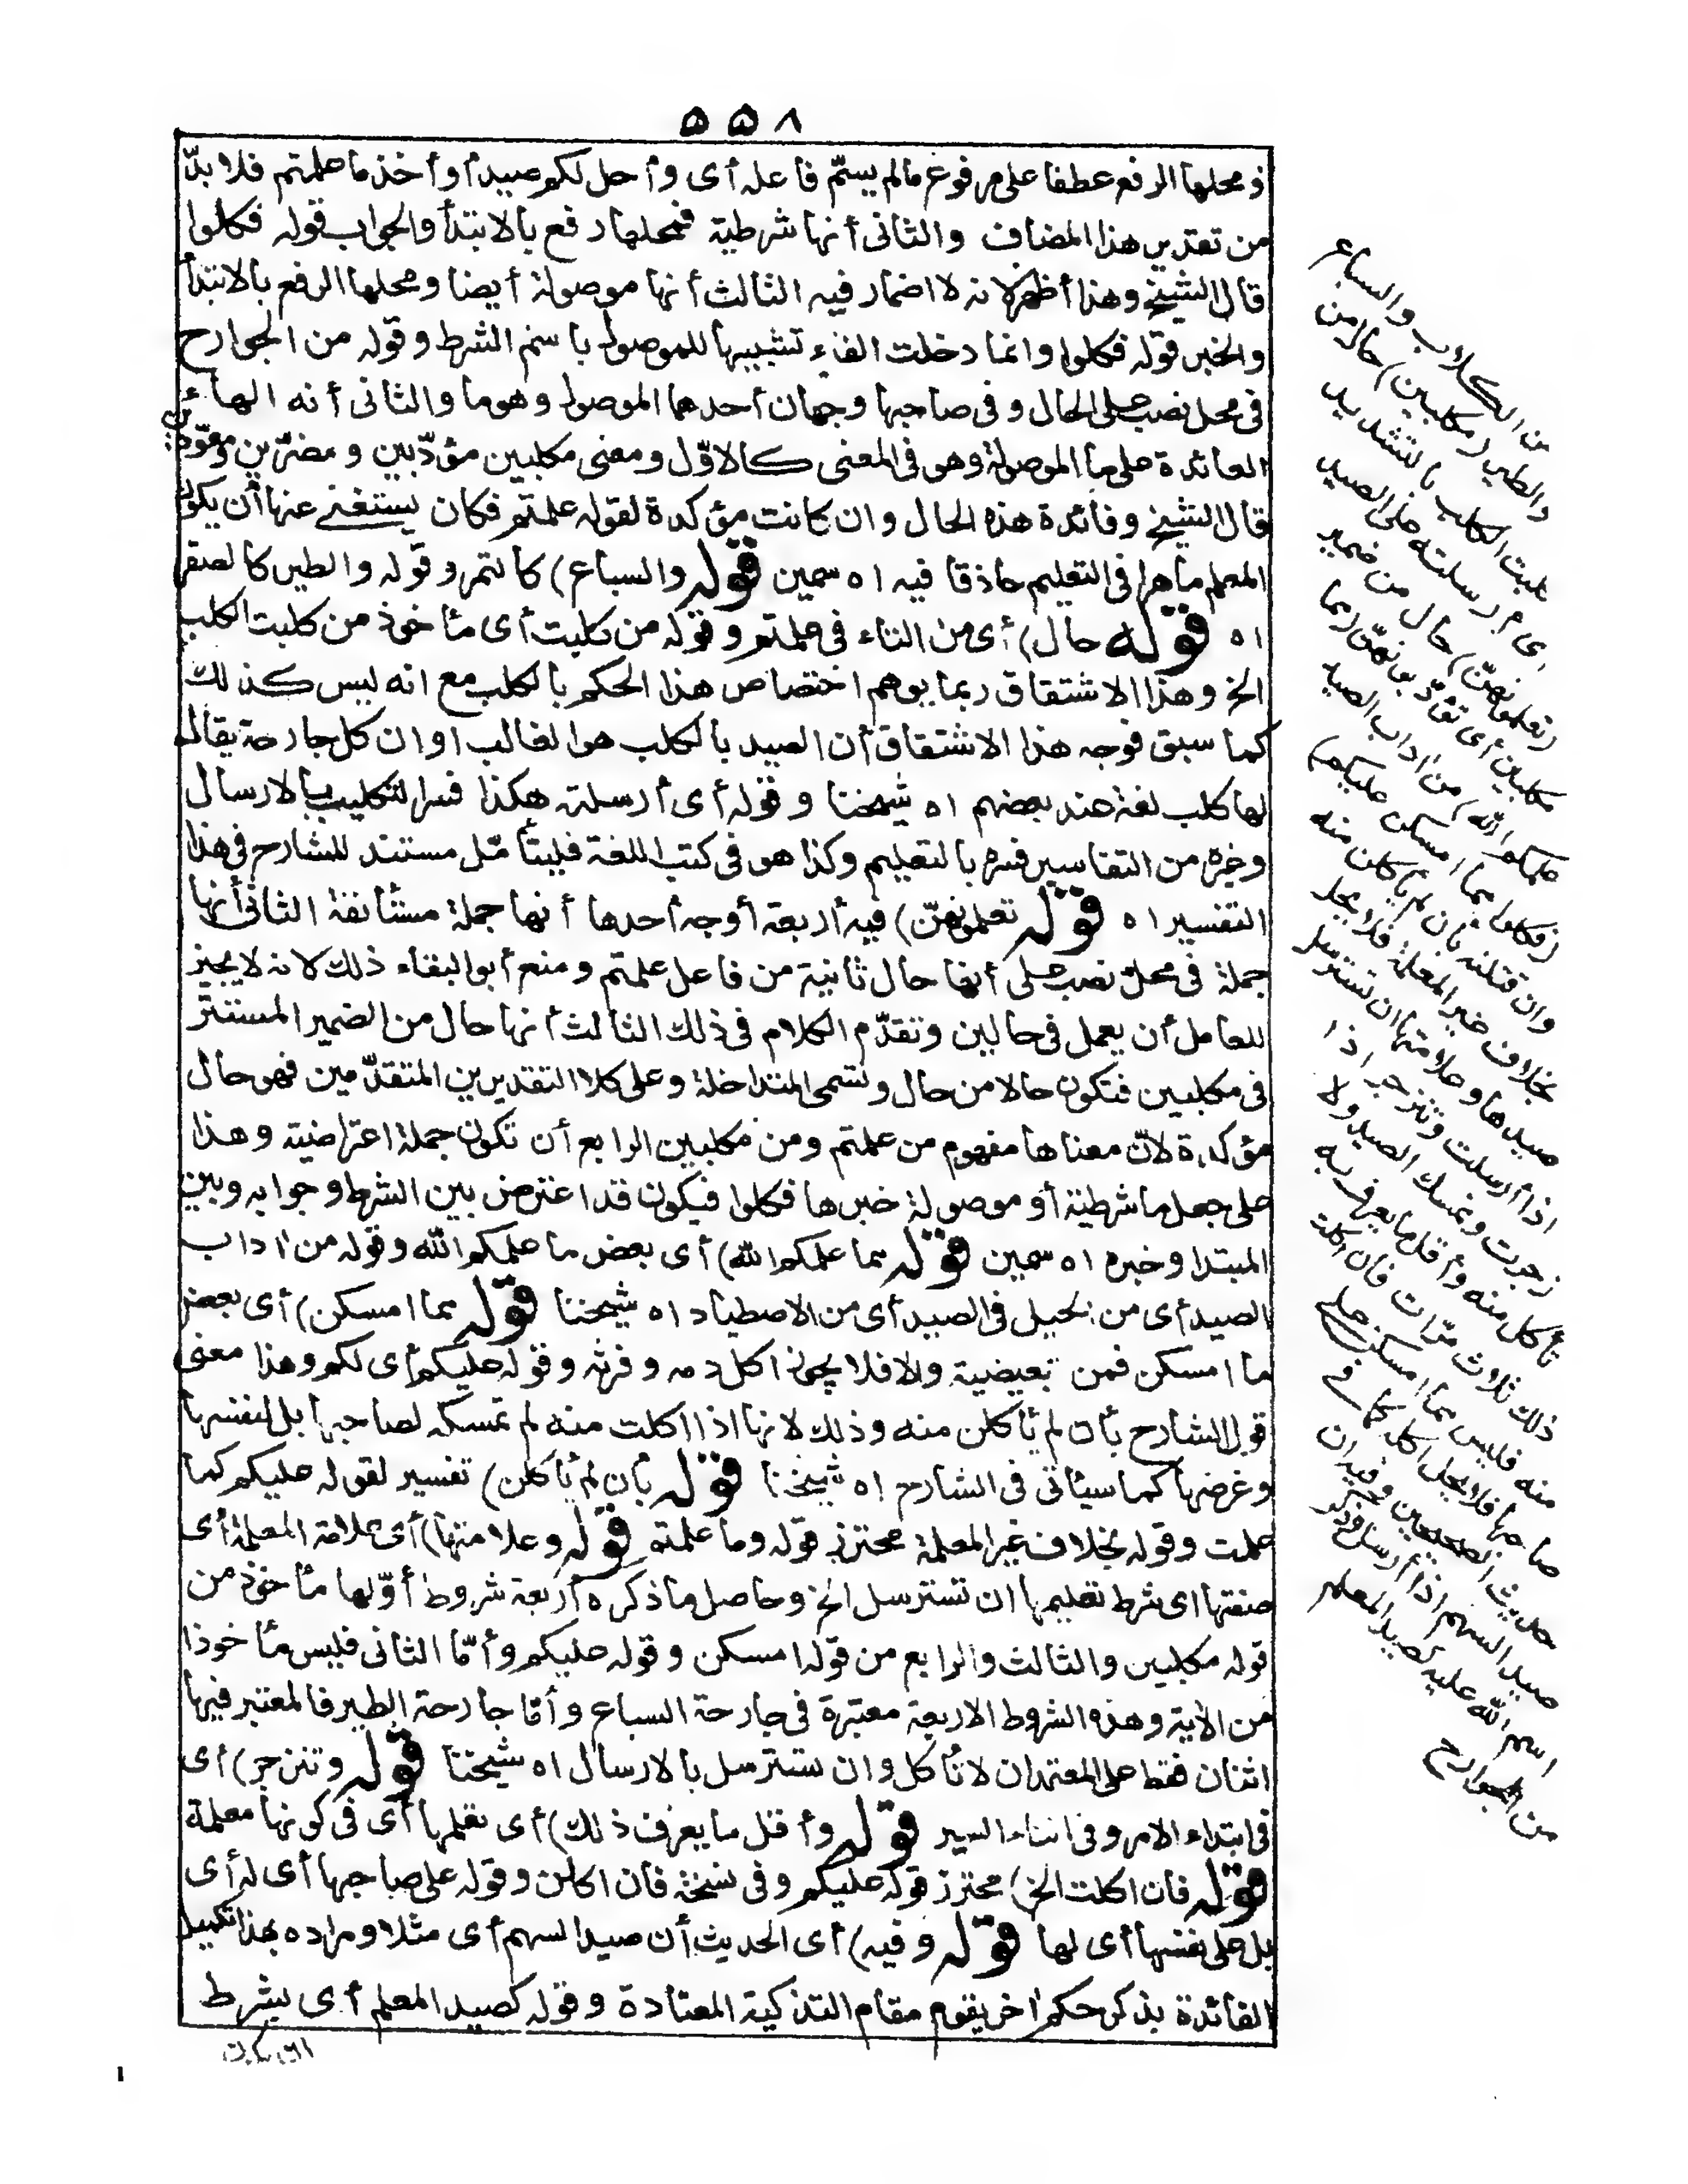 ۵۵۸
ومحلها الرفع عطفا على مرفوع مالم يسمّ فاعله أى وأحل لكم صيد أو أخذ ما علمتم فلا بدّ
من تقدير هذا المضاف والثانى أنها شرطية فمحلها رفع بالابتدأ والجواب قوله فكلوا
قال الشيخ وهذا أظهر لانه لا اضمار فيه الثالث أنها موصولة أيضا ومحلها الرفع بالابتدأ
والخبر قوله فكلوا وانما دخلت الفاء تشبيها للموصول باسم الشرط وقوله من الجوارح
فى محل نصب على الحال وفى صاحبها وجهان أحدهما الموصول وهو ما والثانى أنه الهاء
العائدة على ما الموصولة وهى فى المعنى كالاوّل ومعنى مكلبين مؤدّبين ومضرّين ومعوّدين
قال الشيخ وفائدة هذه الحال وان كانت مؤكدة لقوله علمتم فكان يستغنى عنها أن يكون
المعلم ماهرا فى التعليم حاذقا فيه اه سمين قوله والسباع) كالنمر وقوله والطير كالصقر
اه قوله حال) أى من التاء فى علمتم وقوله من كلبت أى مأخوذ من كلبت الكلب
الخ وهذا الاشتقاق ربما يوهم اختصاص هذا الحكم بالكلب مع انه ليس كذلك
كما سبق فوجه هذا الاشتقاق أن الصيد بالكلب هو الغالب او ان كل جارحة يقال
لها كلب لغة عند بعضهم اه شيخنا وقوله أى أرسلته هكذا فسر التكليب بالارسال
وغيره من التفاسير فسره بالتعليم وكذا هو فى كتب اللغة فليتأمّل مستند للشارح فى هذا
التفسير اه قوله تعلمونهنّ) فيه أربعة أوجه أحدها أنها جملة مستأنفة الثانى أنها
جملة فى محل نصب على أنها حال ثانية من فاعل علمتم ومنع أبو البقاء ذلك لانه لا يجيز
للعامل أن يعمل فى حالين وتقدّم الكلام فى ذلك الثالث أنها حال من الضمير المستتر
فى مكلبين فتكون حالا من حال وتسمى المتداخلة وعلى كلا التقديرين المتقدّمين فهى حال
مؤكدة لانّ معناها مفهوم من علمتم ومن مكلبين الرابع أن تكون جملة اعتراضية وهذا
على جعل ما شرطية أو موصولة خبرها فكلوا فيكون قد اعترض بين الشرط وجوابه وبين
المبتدا وخبره اه سمين قوله مما علمكم الله) أى بعض ما علمكم الله وقوله من اداب
الصيد أى من الحيل فى الصيد أى من الاصطياد اه شيخنا قوله مما امسكن) أى بعض
ما امسكن فمن تبعيضية والا فلا يجوز اكل دمه وفرثه وقوله عليكم أى لكم وهذا معنى
قول الشارح بأن لم يأكلن منه وذلك لانها اذا اكلت منه لم تمسكه لصاحبها بل لنفسها
وغرضها كما سيأتى فى الشارح اه شيخنا قوله بأن لم يأكلن) تفسير لقوله عليكم كما
علمت وقوله بخلاف غير المعلمة محترز قوله وما علمتم قوله وعلامتها) أى علامة المعلمة أى
صفتها اى شرط تعليمها ان تسترسل الخ وحاصل ما ذكره أربعة شروط أوّلها مأخوذ من
قوله مكلبين والثالث والرابع من قوله امسكن وقوله عليكم وأمّا الثانى فليس مأخوذا
من الآية وهذه الشروط الاربعة معتبرة فى جارحة السباع وأمّا جارحة الطير فالمعتبر فيها
اثنان فقط على المعتمد ان لا تأكل وان تسترسل بالارسال اه شيخنا قوله وتنزجر) أى
فى ابتداء الامر وفى اثناء السير قوله وأقل ما يعرف ذلك) أى تعلمها أى فى كونها معلمة
قوله فان اكلت الخ) محترز قوله عليكم وفى نسخة فان اكلن وقوله على صاحبها أى له أى
بل على نفسها أى لها قوله وفيه) أى الحديث أن صيد السهم أى مثلا ومراده بهذا تكميل
الفائدة بذكر حكم اخر يقوم مقام التذكية المعتادة وقوله كصيد المعلم أى بشرط
من الكلاب والسباع
والطير (مكلبين) حال من
كلبت الكلب بالتشديد
اى ارسلته على الصيد
(تعلمونهنّ) حال من ضمير
مكلبين أى تؤدّبونهنّ (مما
علمكم الله) من اداب الصيد
(فكلوا مما امسكن عليكم)
وان قتلنه بأن لم يأكلن منه
بخلاف غير المعلمة فلا يحل
صيدها وعلامتها ان تسترسل
اذا أرسلت وتنزجر اذا
زجرت وتمسك الصيد ولا
تأكل منه وأقل ما يعرف به
ذلك ثلاث مرّات فان اكلت
منه فليس مما امسكن على
صاحبها فلا يحل اكله كما فى
حديث الصحيحين وفيه ان
صيد السهم اذا أرسل وذكر
اسم الله عليه كصيد المعلم
من الجوارح